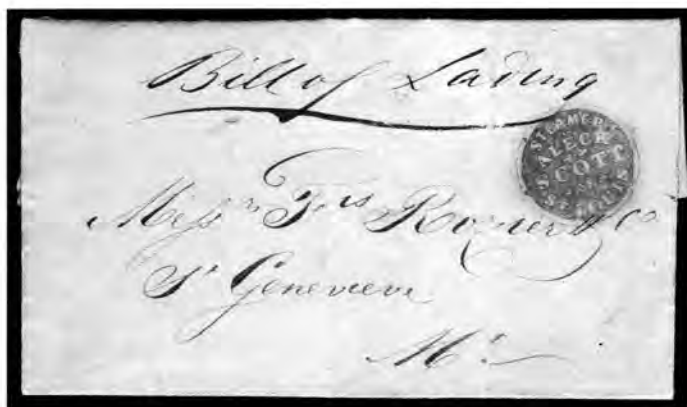 Bill of Lading
STEAMER
ALECK
SCOTT
ST LOUIS
Messrs Frs Rozier & Co
St Genevieve
Mo.